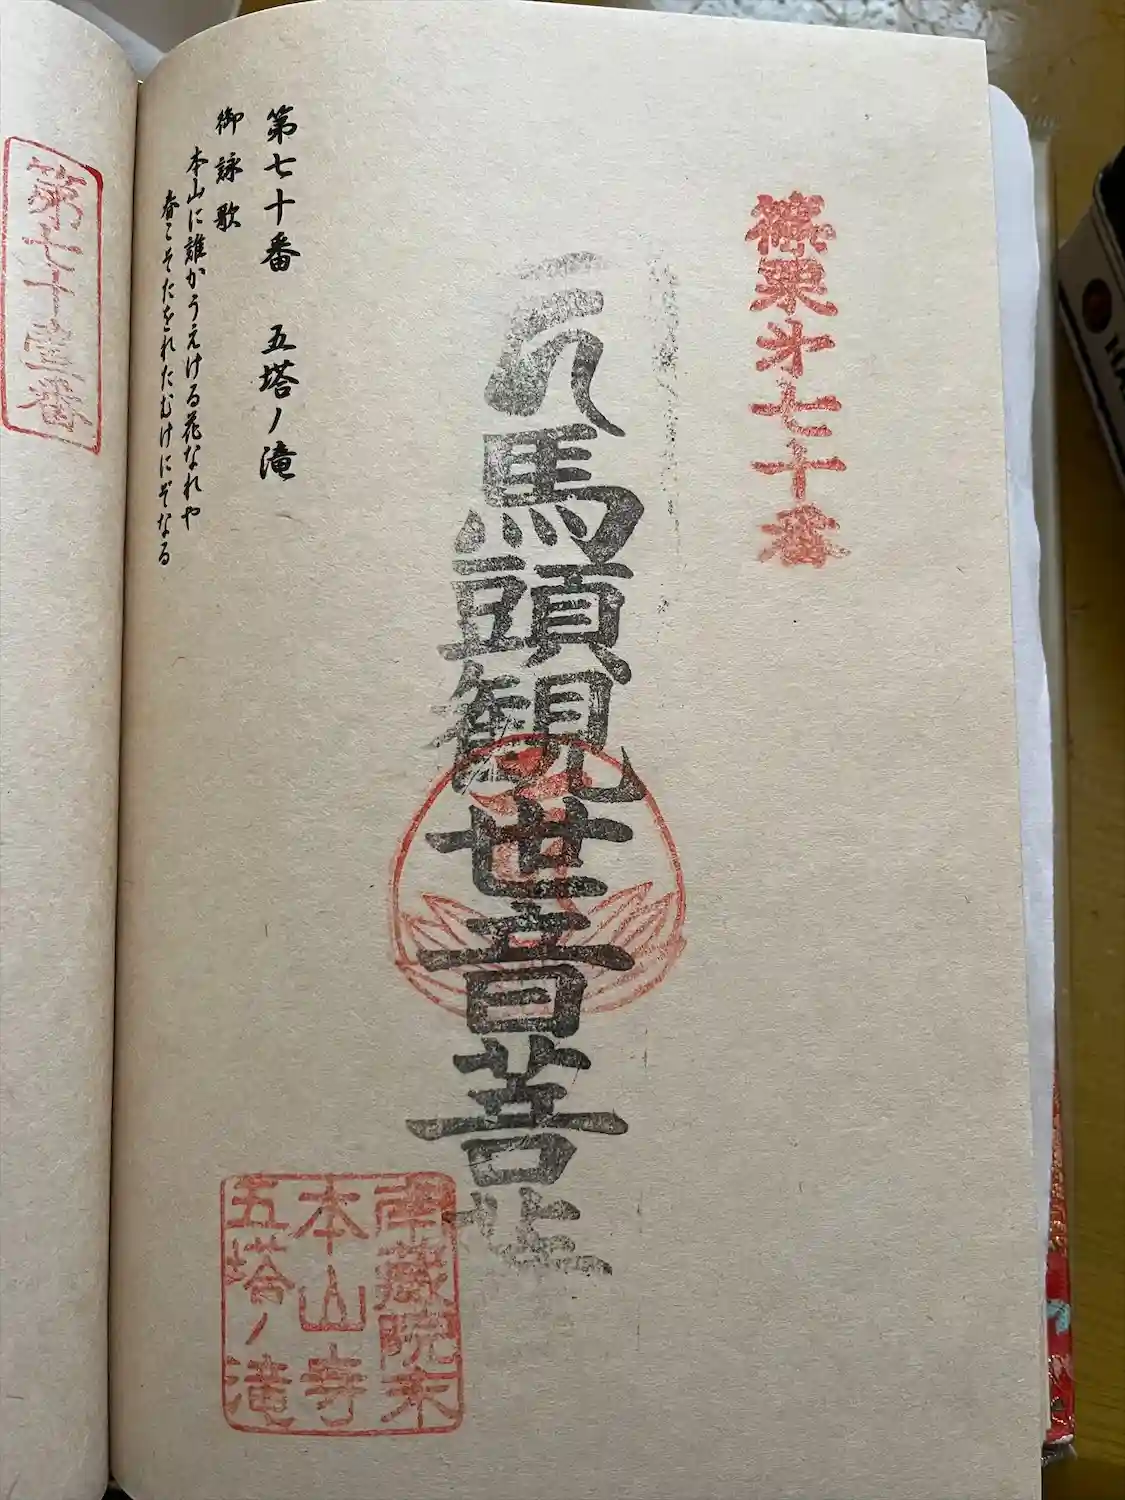 篠栗第七十番
馬頭観世音菩
南蔵院末
本山寺
五塔ノ滝
第七十番 五塔ノ滝
御詠歌
本山に誰かうえける花なれや
春こそたをれたむけにぞなる
第七十壱番